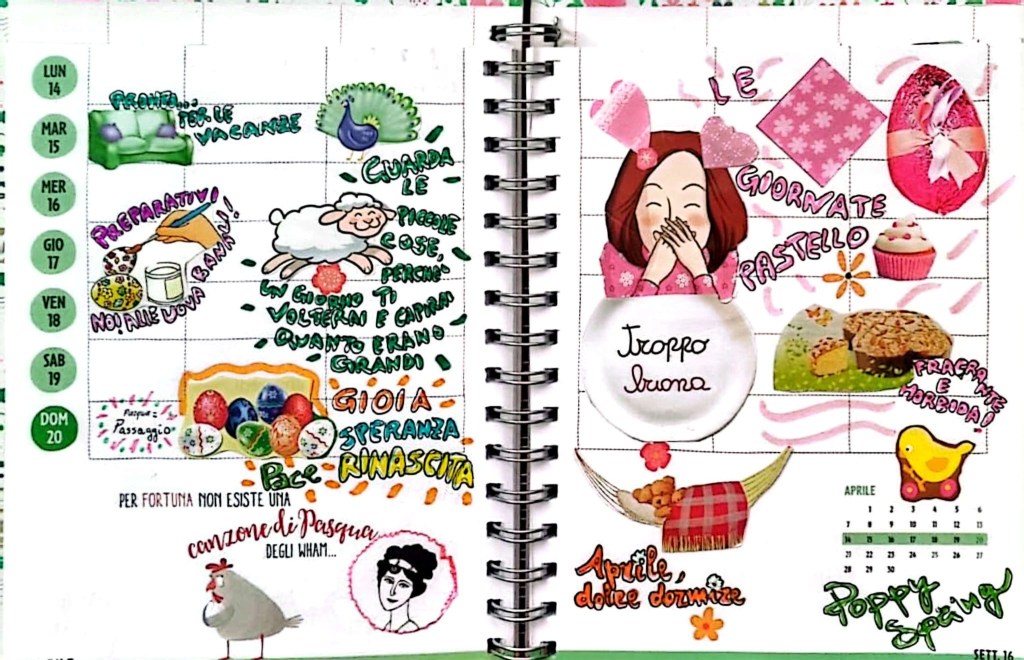 LUN
14
MAR
15
MER
16
GIO
17
VEN
18
SAB
19
DOM
20
PRONTA...
PER LE
VACANZE
GUARDA
LE
PICCOLE
COSE,
PERCHÉ
UN GIORNO TI
VOLTERAI E CAPIRAI
QUANTO ERANO
GRANDI
PREPARATIVI
NO! ALLE UOVA BANALI!
Pasqua:
Passaggio
GIOIA
SPERANZA
Pace RINASCITA
PER FORTUNA NON ESISTE UNA
canzone di Pasqua
DEGLI WHAM...
LE
GIORNATE
PASTELLO
Troppo
buona
FRAGRANTE
E
MORBIDA!
Aprile,
dolce dormire
APRILE
1 2 3 4 5 6
7 8 9 10 11 12 13
14 15 16 17 18 19 20
21 22 23 24 25 26 27
28 29 30
Poppy
Spring
SETT. 16